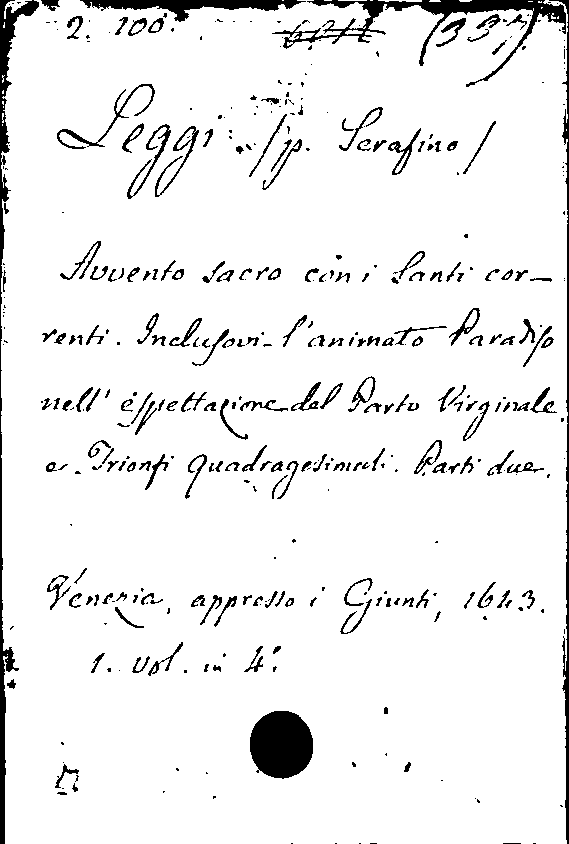 2. 100. (337)
Leggi. /p. Serafino/
Avvento sacro con i Santi cor-
renti. Inclusovi l'animato Paradiso
nell' espettazione del Parto Virginale.
e Trionfi quadragesimali. Parti due.
Venezia, appresso i Giunti, 1643.
1. vol. in 4.º